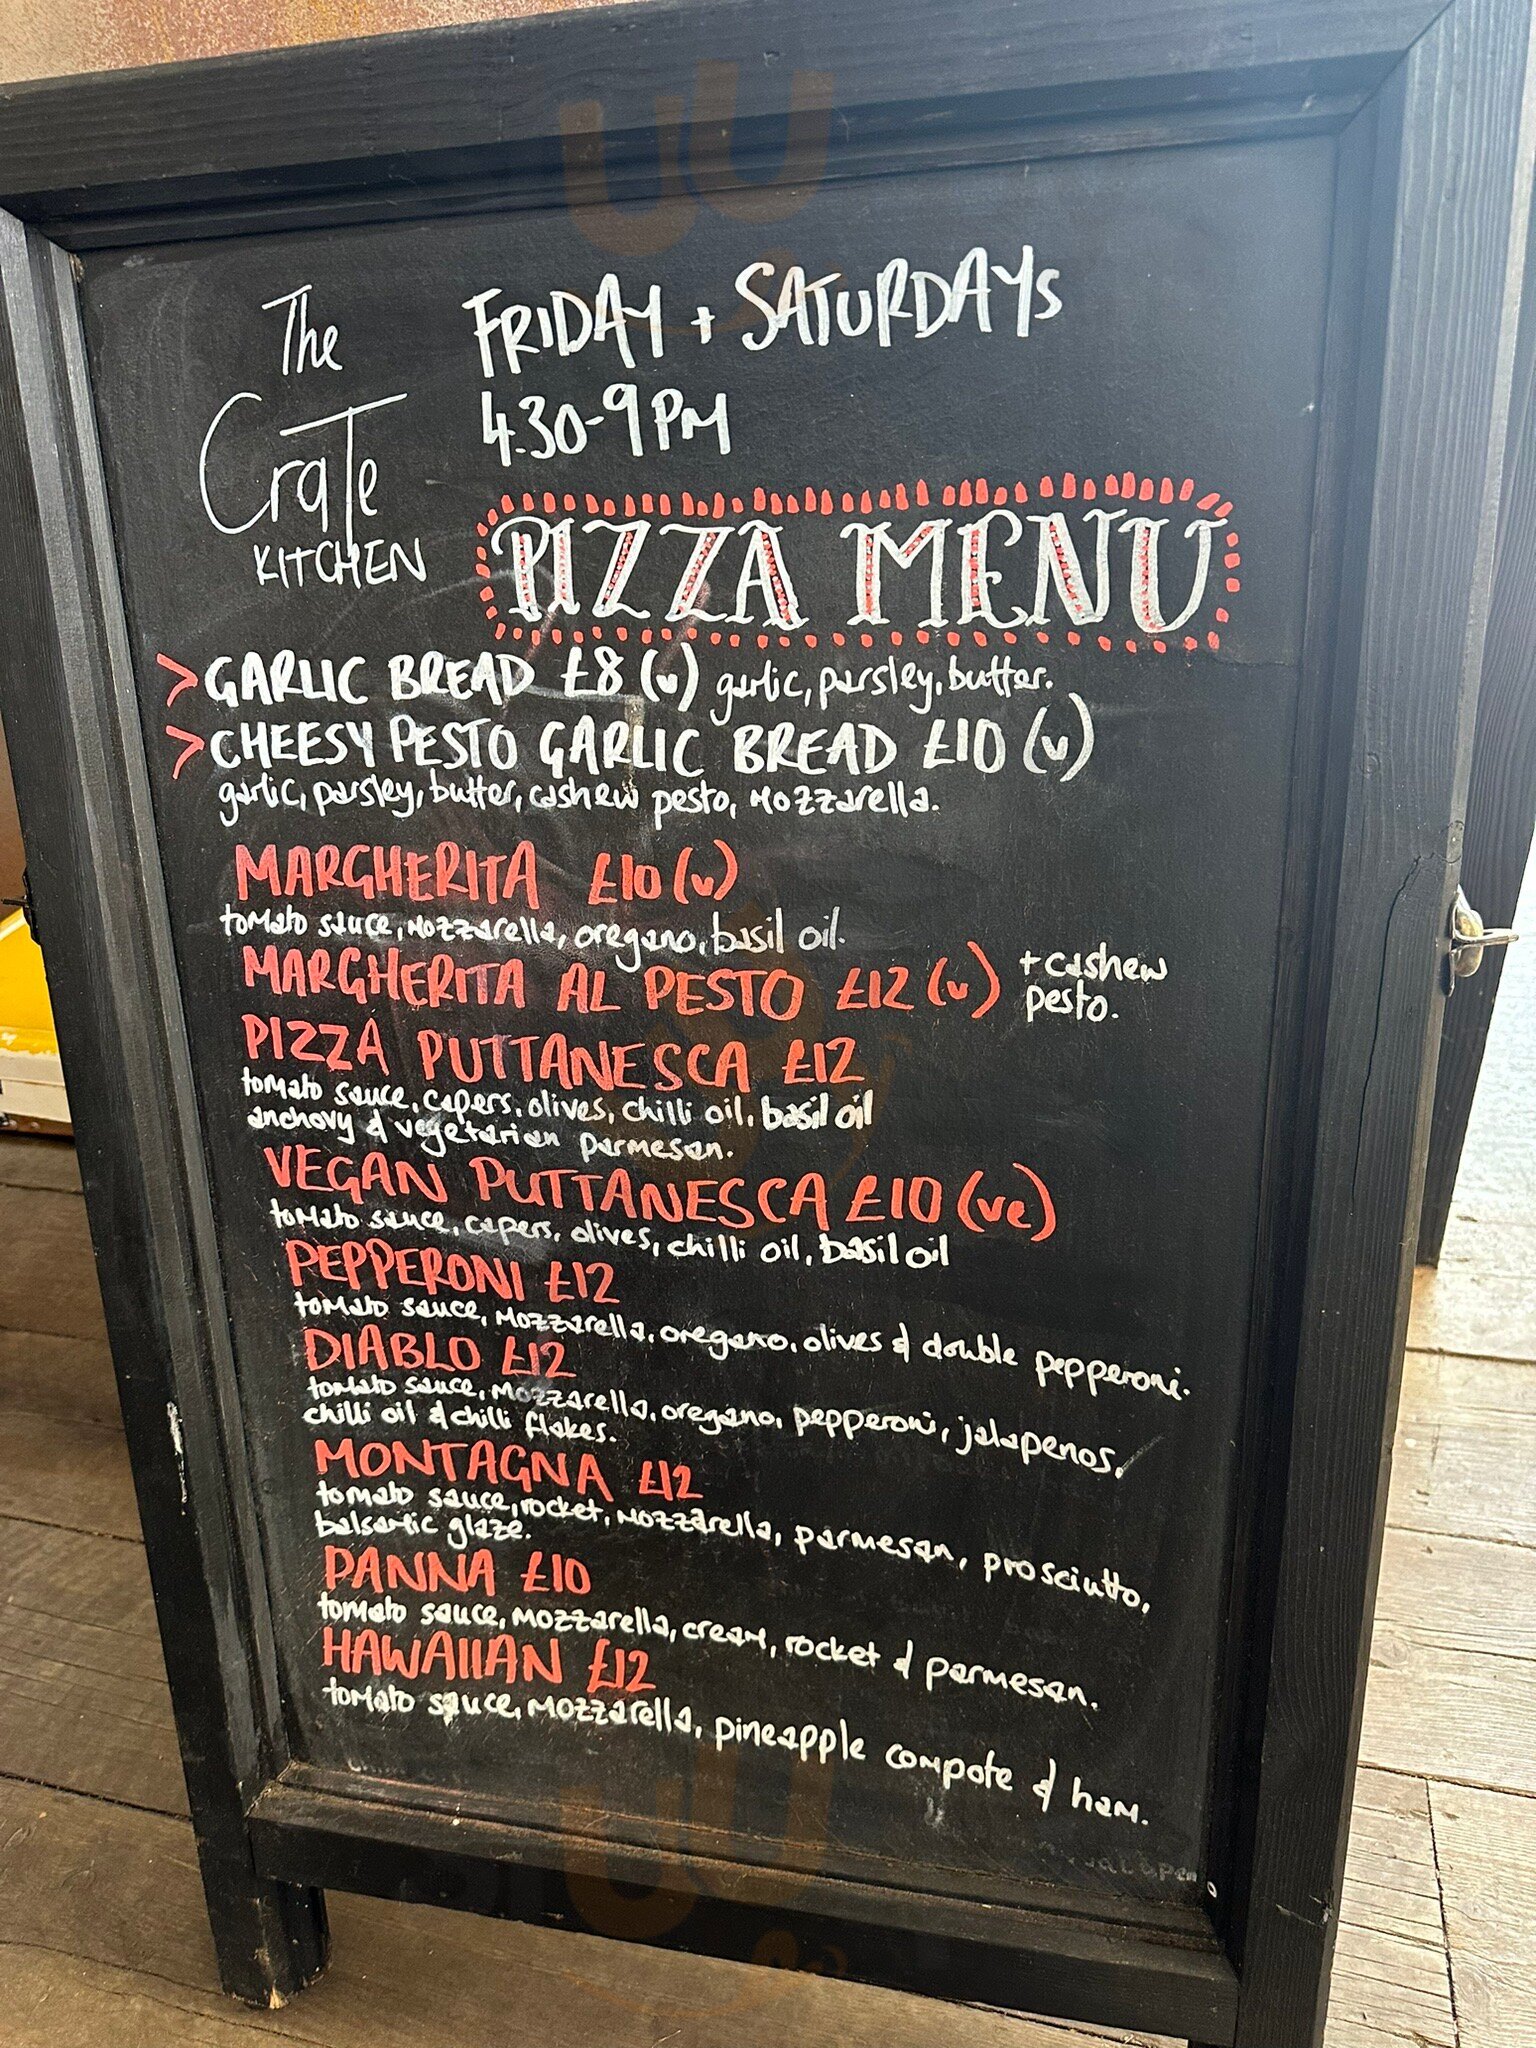 The
CraTe
KITCHEN
FRIDAY + SATURDAYS
4.30-9PM
PIZZA MENU
> GARLIC BREAD £8 (v) garlic, parsley, butter.
> CHEESY PESTO GARLIC BREAD £10 (v)
garlic, parsley, butter, cashew pesto, mozzarella.
MARGHERITA £10 (v)
tomato sauce, mozzarella, oregano, basil oil.
MARGHERITA AL PESTO £12 (v) + cashew
pesto.
PIZZA PUTTANESCA £12
tomato sauce, capers, olives, chilli oil, basil oil
anchovy & vegetarian parmesan.
VEGAN PUTTANESCA £10 (ve)
tomato sauce, capers, olives, chilli oil, basil oil
PEPPERONI £12
tomato sauce, mozzarella, oregano, olives & double pepperoni.
DIABLO £12
tomato sauce, mozzarella, oregano, pepperoni, jalapenos,
chilli oil & chilli flakes.
MONTAGNA £12
tomato sauce, rocket, mozzarella, parmesan, prosciutto,
balsamic glaze.
PANNA £10
tomato sauce, mozzarella, cream, rocket & parmesan.
HAWAIIAN £12
tomato sauce, mozzarella, pineapple compote & ham.